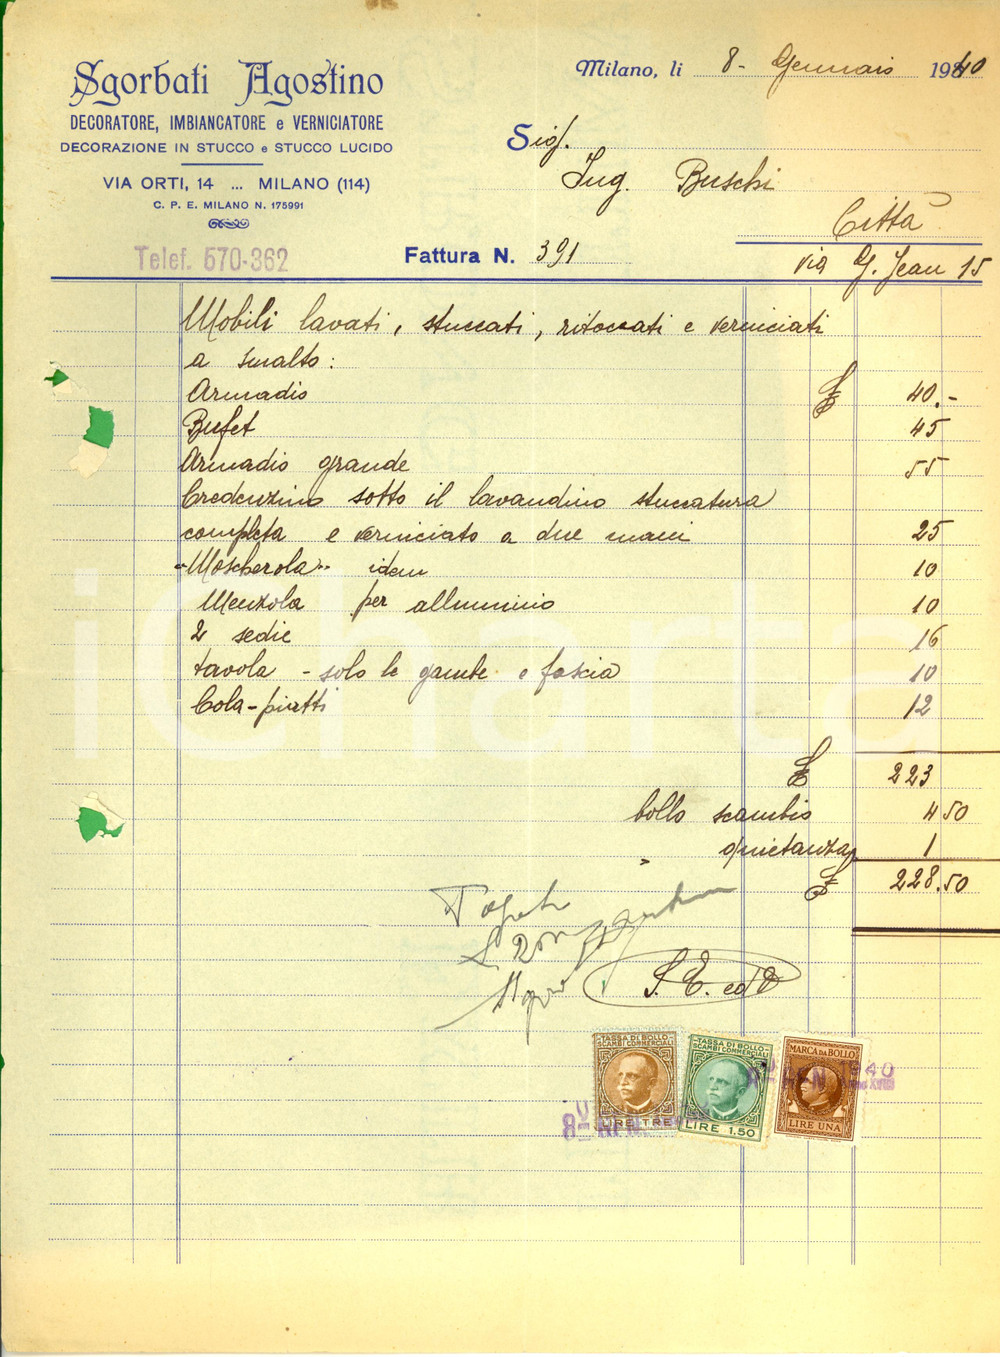 Sgorbati Agostino
DECORATORE, IMBIANCATORE e VERNICIATORE
DECORAZIONE IN STUCCO e STUCCO LUCIDO
VIA ORTI, 14 ... MILANO (114)
C. P. E. MILANO N. 175991
Telef. 570-362
Milano, li 8- Gennaio 1940
Sig.
Ing. Buschi
Città
Fattura N. 391
via G. Jean 15
Mobili lavati, stuccati, ritoccati e verniciati
a smalto:
Armadio £ 40.-
Bufet 45
Armadio grande 55
Credenzino sotto il lavandino stuccatura
completa e verniciato a due mani 25
"Moscherola" idem 10
Menzola per alluminio 10
2 sedie 16
tavola - solo le gambe e fascia 10
Cola-piatti 12
£ 223
bollo scambio 4 50
" quietanza 1
£ 228.50
S. E. ed O
TASSA DI BOLLO
SCAMBI COMMERCIALI
LIRE TRE
TASSA DI BOLLO
SCAMBI COMMERCIALI
LIRE 1,50
MARCA DA BOLLO
LIRE UNA
8 GEN
GEN 1940
Anno XVIII
iCharta